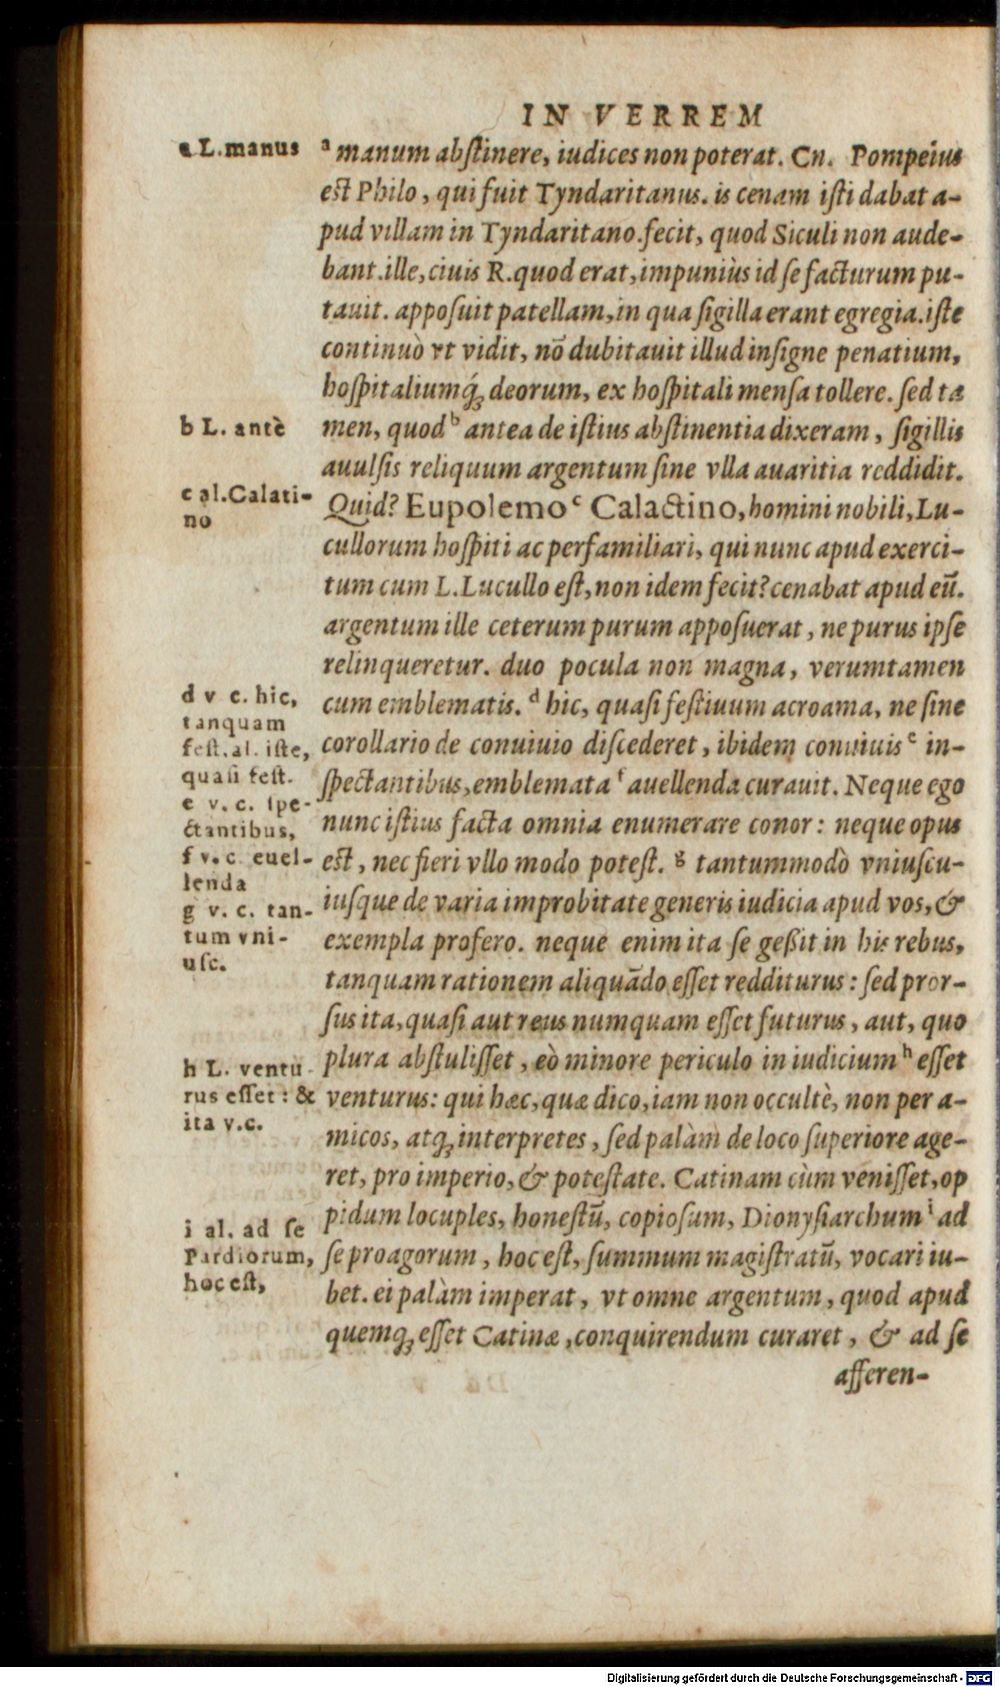 IN VERREM
a L. manus
ᵃ manum abſtinere, iudices non poterat. Cn. Pompeius
eſt Philo, qui fuit Tyndaritanus. is cenam iſti dabat a-
pud villam in Tyndaritano. fecit, quod Siculi non aude-
bant. ille, ciuis R. quod erat, impuniùs id ſe facturum pu-
tauit. appoſuit patellam, in qua ſigilla erant egregia. iſte
continuò vt vidit, nõ dubitauit illud inſigne penatium,
hoſpitaliumq́; deorum, ex hoſpitali menſa tollere. ſed ta
b L. antè
men, quod ᵇ antea de iſtius abſtinentia dixeram, ſigillis
auulſis reliquum argentum ſine vlla auaritia reddidit.
c al. Calati-
no
Quid? Eupolemo ᶜ Calactino, homini nobili, Lu-
cullorum hoſpiti ac perfamiliari, qui nunc apud exerci-
tum cum L. Lucullo eſt, non idem fecit? cenabat apud eũ.
argentum ille ceterum purum appoſuerat, ne purus ipſe
relinqueretur. duo pocula non magna, verumtamen
d v c. hic,
tanquam
feſt. al. iſte,
quaſi feſt.
cum emblematis. ᵈ hic, quaſi feſtiuum acroama, ne ſine
corollario de conuiuio diſcederet, ibidem conuiuis ᵉ in-
e v. c. ſpe-
ctantibus,
ſpectantibus, emblemata ᶠ auellenda curauit. Neque ego
nunc iſtius facta omnia enumerare conor: neque opus
f v. c. euel-
lenda
eſt, nec fieri vllo modo poteſt. ᵍ tantummodò vniuſcu-
g v. c. tan-
tum vni-
uſc.
iuſque de varia improbitate generis iudicia apud vos, &
exempla profero. neque enim ita ſe geßit in his rebus,
tanquam rationem aliquãdo eſſet redditurus: ſed pror-
ſus ita, quaſi aut reus numquam eſſet futurus, aut, quo
h L. ventu-
rus eſſet: &
ita v. c.
plura abſtuliſſet, eò minore periculo in iudicium ʰ eſſet
venturus: qui hæc, quæ dico, iam non occultè, non per a-
micos, atq; interpretes, ſed palàm de loco ſuperiore age-
ret, pro imperio, & poteſtate. Catinam cùm veniſſet, op
i al. ad ſe
Pardiorum,
hoc eſt,
pidum locuples, honeſtũ, copioſum, Dionyſiarchum ⁱ ad
ſe proagorum, hoc eſt, ſummum magiſtratũ, vocari iu-
bet. ei palàm imperat, vt omne argentum, quod apud
quemq; eſſet Catinæ, conquirendum curaret, & ad ſe
afferen-
Digitalisierung gefördert durch die Deutsche Forschungsgemeinschaft - DFG